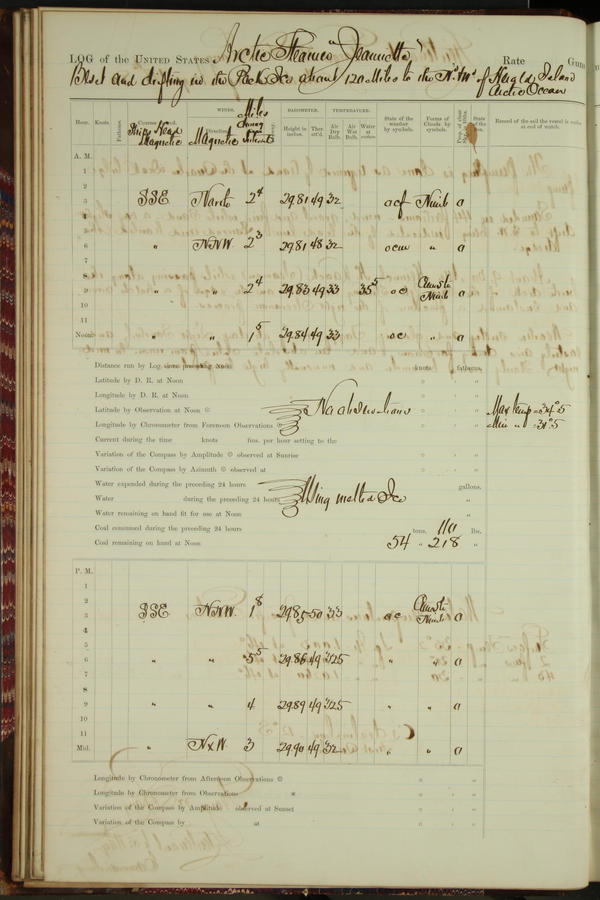 LOG of the UNITED STATES Arctic Steamer "Jeannette" Rate Guns
Beset and drifting in the Pack Ice about 120 Miles to the of Herald Island
Arctic Ocean
WINDS. Miles BAROMETER. TEMPERATURE.
Hour. Knots. Fathoms. Ship's Head Magnetic Direction. Magnetic Height in inches. Ther. att'd. Air Dry Bulb. Air Wet Bulb. Water at surface. State of the weather by symbols. Forms of Clouds by symbols. State of the Sea. Record of the sail the vessel is under at end of watch.
A. M.
1
2
3 SSE 2 4 29.81 49 32 ocf Nimb a
4
5
6 " NNW. 2 3 29.81 48 32 ocm " a
7
8
9 " " 2 4 29.83 49 33 35 5 oc Nimb a
10
11
Noon " " 1 5 29.84 49 33 oc " a
Distance run by Log since preceding Noon knots fathoms.
Latitude by D. R. at Noon ° ' "
Longitude by D. R. at Noon ° ' "
Latitude by Observation at Noon No observations ° ' " Max temp = 34°.5
Longitude by Chronometer from Forenoon Observations ° ' " Min " =
Current during the time knots fms. per hour setting to the
Variation of the Compass by Amplitude observed at Sunrise ° ' "
Variation of the Compass by Azimuth observed at ° ' "
Water expended during the preceding 24 hours gallons.
Water during the preceding 24 hours Using melted Ice "
Water remaining on hand fit for use at Noon "
Coal consumed during the preceding 24 hours tons. 110 lbs.
Coal remaining on hand at Noon 54 " 218 "
P. M.
1
2
3 SSE NNW. 1 8 29.85 50 33 oc Nimb a
4
5
6 " " 5 5 29.86 49 32.5 " " a
7
8
9 " " 4 29.89 49 32.5 " " a
10
11
Mid. " NxW. 3 29.90 49 32 " " a
Longitude by Chronometer from Afternoon Observations ° ' "
Longitude by Chronometer from Observations * ° ' "
Variation of the Compass by Amplitude observed at Sunset ° ' "
Variation of the Compass by at ° ' "